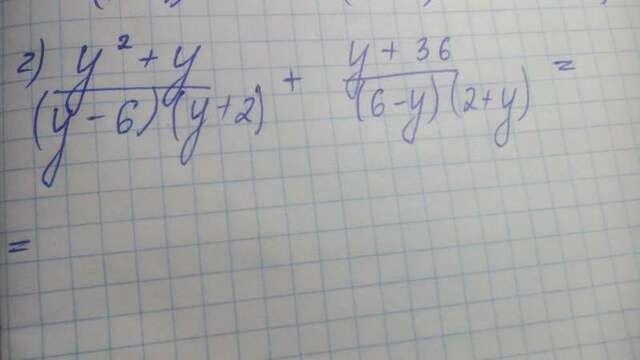 г) (y² + y)/((y - 6)(y + 2)) + (y + 36)/((6 - y)(2 + y)) =
=